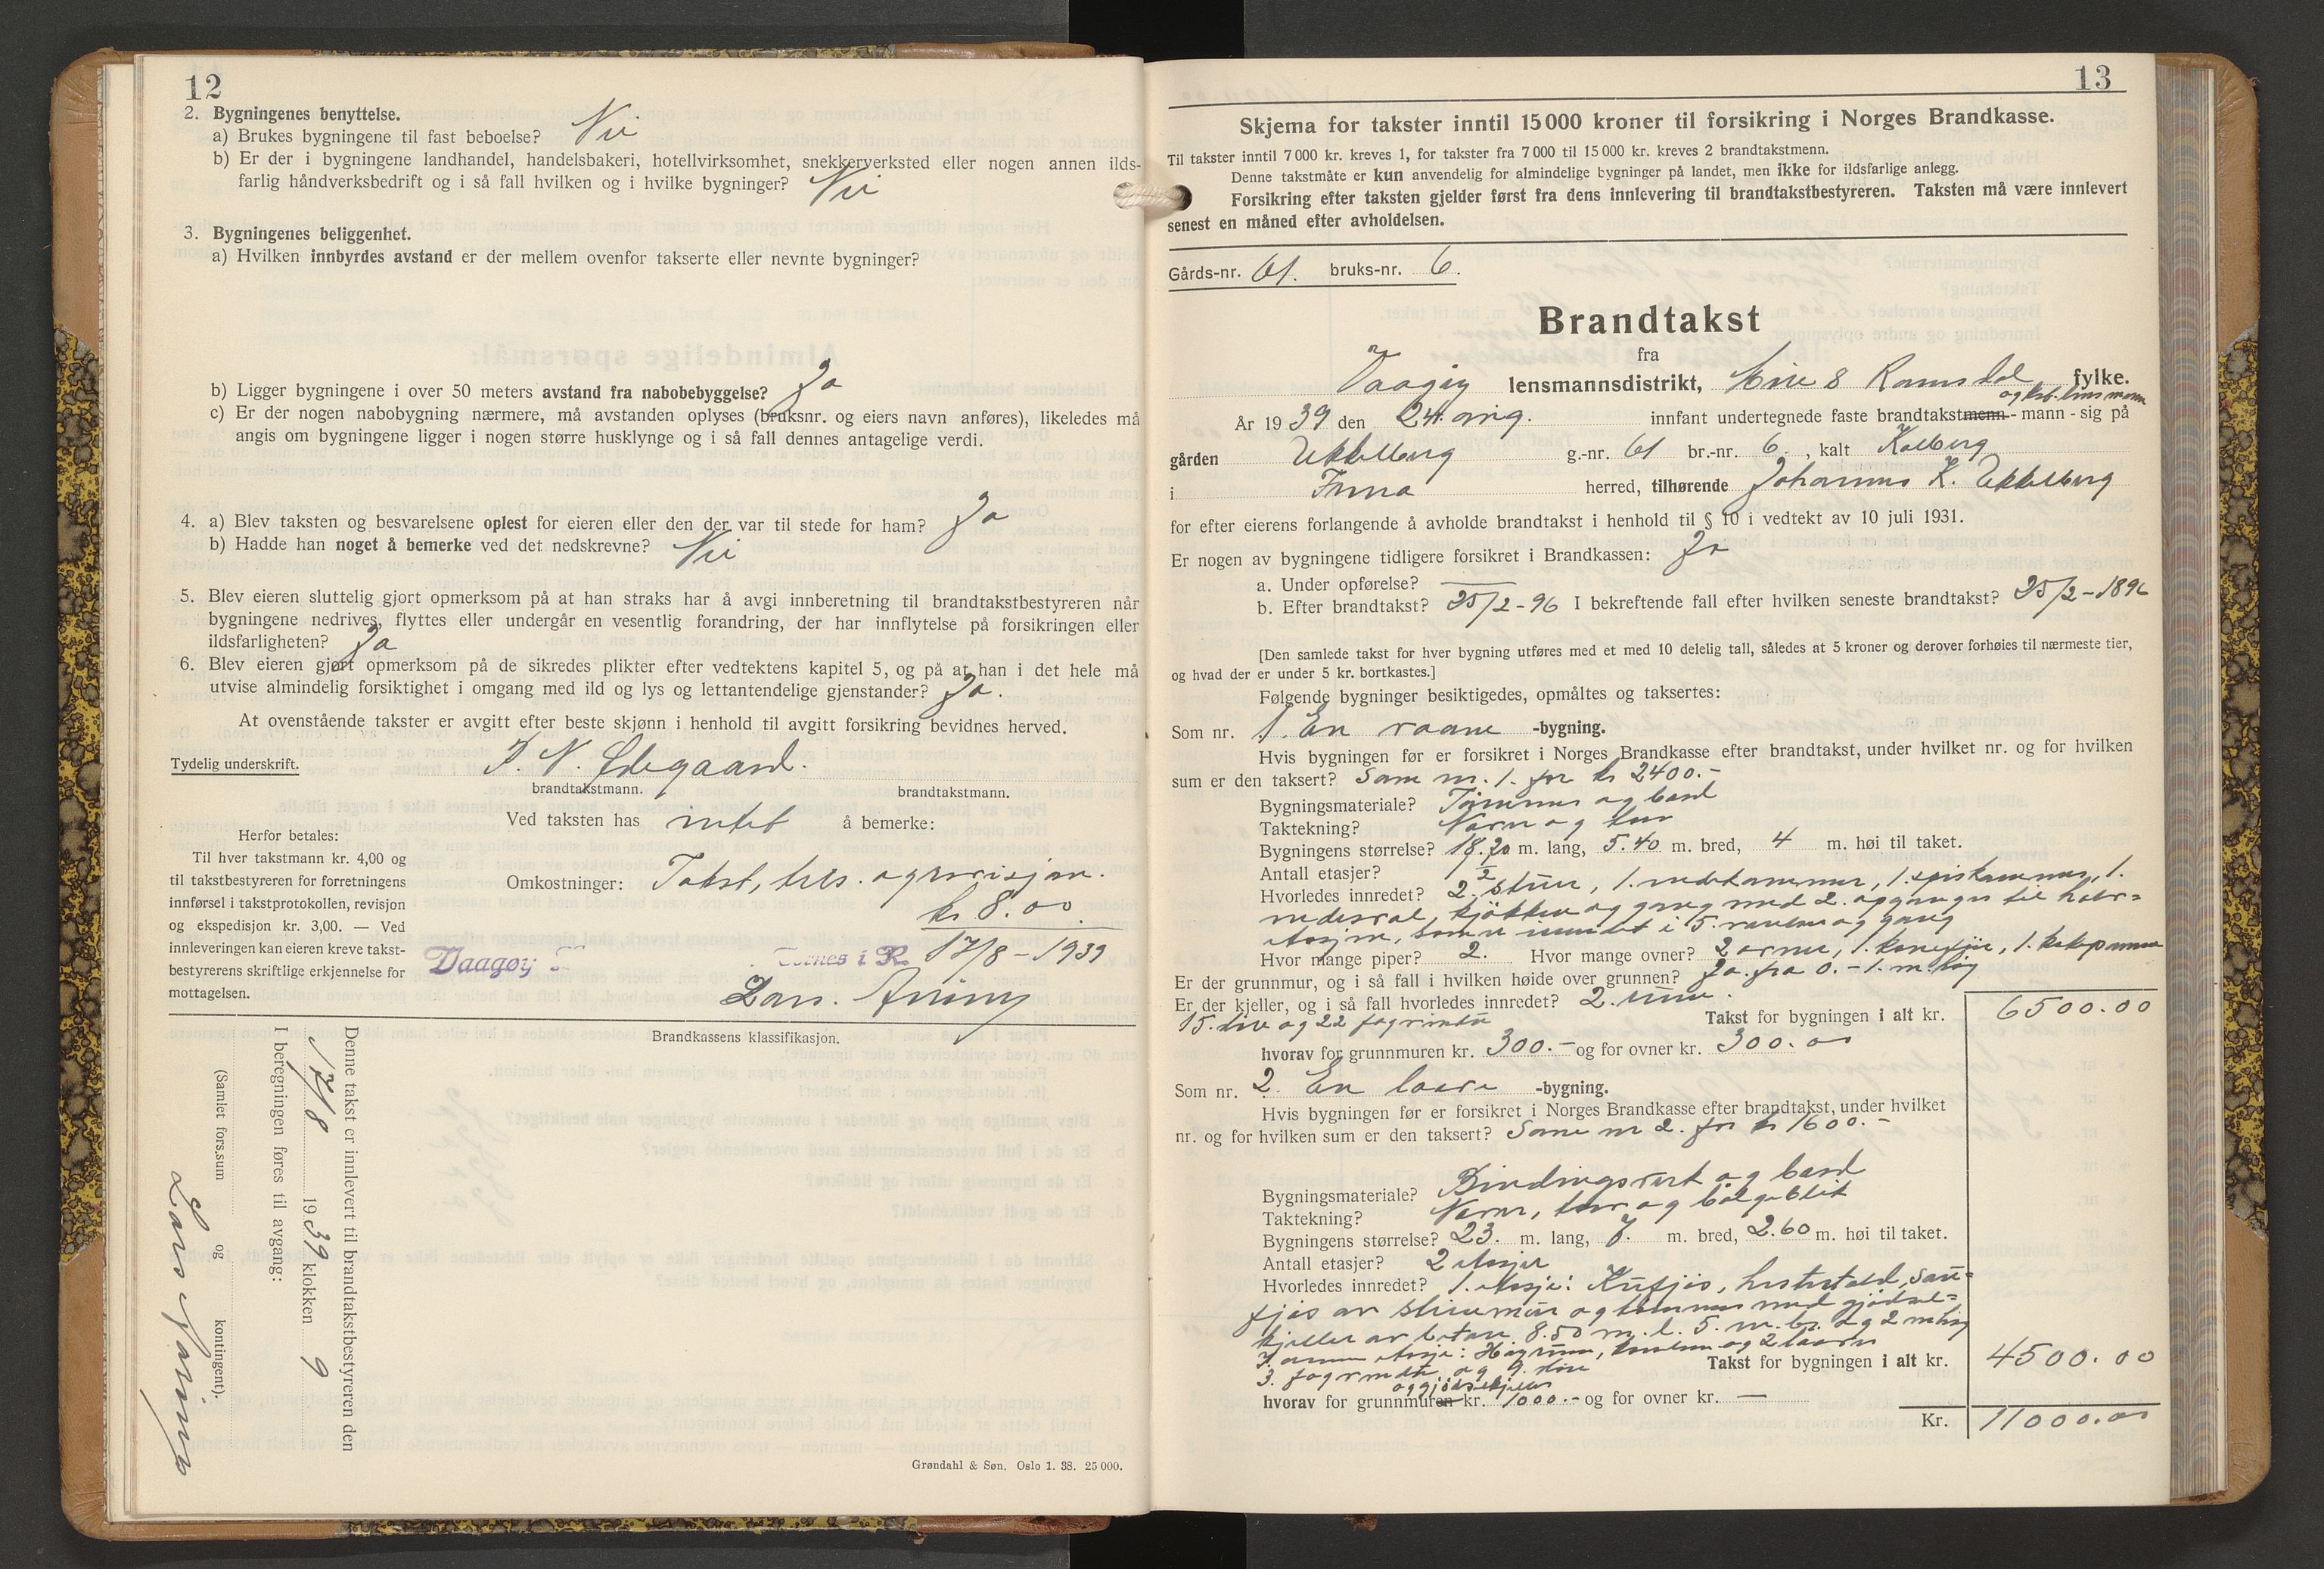 12
2. Bygningenes benyttelse.
a) Brukes bygningene til fast beboelse? Nei
b) Er der i bygningene landhandel, handelsbakeri, hotellvirksomhet, snekkerverksted eller nogen annen ilds-
farlig håndverksbedrift og i så fall hvilken og i hvilke bygninger? Nei
3. Bygningenes beliggenhet.
a) Hvilken innbyrdes avstand er der mellem ovenfor takserte eller nevnte bygninger?
b) Ligger bygningene i over 50 meters avstand fra nabobebyggelse? Ja
c) Er der nogen nabobygning nærmere, må avstanden oplyses (bruksnr. og eiers navn anføres), likeledes må
angis om bygningene ligger i nogen større husklynge og i så fall dennes antagelige verdi.
4. a) Blev taksten og besvarelsene oplest for eieren eller den der var til stede for ham? Ja
b) Hadde han noget å bemerke ved det nedskrevne? Nei
5. Blev eieren sluttelig gjort opmerksom på at han straks har å avgi innberetning til brandtakstbestyreren når
bygningene nedrives, flyttes eller undergår en vesentlig forandring, der har innflytelse på forsikringen eller
ildsfarligheten? Ja
6. Blev eieren gjort opmerksom på de sikredes plikter efter vedtektens kapitel 5, og på at han i det hele må
utvise almindelig forsiktighet i omgang med ild og lys og lettantendelige gjenstander? Ja.
At ovenstående takster er avgitt efter beste skjønn i henhold til avgitt forsikring bevidnes herved.
Tydelig underskrift. J. N. Ødegaard.
brandtakstmann. brandtakstmann.
Ved taksten has intet å bemerke:
Herfor betales:
Til hver takstmann kr. 4,00 og
til takstbestyreren for forretningens
innførsel i takstprotokollen, revisjon
og ekspedisjon kr. 3,00. — Ved
innleveringen kan eieren kreve takst-
bestyrerens skriftlige erkjennelse for
mottagelsen.
Omkostninger: Takst, bes. og revisjon.
kr 8.00
Vaagøy i R. 17/8 - 1939
Lars
Brandkassens klassifikasjon.
Denne takst er innlevert til brandtakstbestyreren den
17/8 1939 klokken 9
I beregningen føres til avgang:
(Samlet fors.sum og kontingent).
Lars
Grøndahl & Søn, Oslo 1. 38. 25 000.
13
Skjema for takster inntil 15 000 kroner til forsikring i Norges Brandkasse.
Til takster inntil 7 000 kr. kreves 1, for takster fra 7 000 til 15 000 kr. kreves 2 brandtakstmenn.
Denne takstmåte er kun anvendelig for almindelige bygninger på landet, men ikke for ildsfarlige anlegg.
Forsikring efter taksten gjelder først fra dens innlevering til brandtakstbestyreren. Taksten må være innlevert
senest en måned efter avholdelsen.
Gårds-nr. 61. bruks-nr. 6.
Brandtakst
fra
Vaagøy lensmannsdistrikt, Møre & Romsdal fylke.
År 1939 den 24. innfant undertegnede faste brandtakstmenn - mann - sig på
gården Ukkelberg g.-nr. 61 br.-nr. 6. , kalt Kolberg
i Frena herred, tilhørende Johannes K. Ukkelberg
for efter eierens forlangende å avholde brandtakst i henhold til § 10 i vedtekt av 10 juli 1931.
Er nogen av bygningene tidligere forsikret i Brandkassen: Ja
a. Under opførelse? —
b. Efter brandtakst? 25/2-96 I bekreftende fall efter hvilken seneste brandtakst? 25/2-1896
[Den samlede takst for hver bygning utføres med et med 10 delelig tall, således at 5 kroner og derover forhøies til nærmeste tier,
og hvad der er under 5 kr. bortkastes.]
Følgende bygninger besiktigedes, opmåltes og taksertes:
Som nr. 1. En vaane -bygning.
Hvis bygningen før er forsikret i Norges Brandkasse efter brandtakst, under hvilket nr. og for hvilken
sum er den taksert? Som nr. 1. for kr 2400.-
Bygningsmateriale? Tømmer og bord
Taktekning? Never og torv
Bygningens størrelse? 18.70 m. lang, 5.40 m. bred, 4 m. høi til taket.
Antall etasjer? 1 1/2
Hvorledes innredet? 2 stuer, 1. 1. spiskammer, 1.
kjøkken og gang med 2. opganger til halv-
etasjen, som er innredet i 5. rom og gang
Hvor mange piper? 2. Hvor mange ovner? 2 ovner, 1. komfyr, 1.
Er der grunnmur, og i så fall i hvilken høide over grunnen? Ja. fra 0. - 1. m. høi
Er der kjeller, og i så fall hvorledes innredet? 2. rum.
15. dører og 22 fag vinduer Takst for bygningen i alt kr. 6500.00
hvorav for grunnmuren kr. 300.- og for ovner kr. 300.00
Som nr. 2. En laave -bygning.
Hvis bygningen før er forsikret i Norges Brandkasse efter brandtakst, under hvilket
nr. og for hvilken sum er den taksert? Som nr 2. for kr 1600.-
Bygningsmateriale? Bindingsverk og bord
Taktekning? Never, torv og bølgeblik
Bygningens størrelse? 23. m. lang, 7. m. bred, 2.60 m. høi til taket.
Antall etasjer? 2 etasjer
Hvorledes innredet? 1. etasje: Kufjøs, hestestald, sau-
fjøs av stenmur og tømmer med gjødsel-
kjeller av betong 8.50 m. l. 5. m. br. og 2 m høi
I annen etasje: Høyrum, og 2 laaver
3. fag vinduer og 9. dører Takst for bygningen i alt kr. 4500.00
og gjødselkjeller
hvorav for grunnmuren kr. 1000.- og for ovner kr. —
Kr. 11000.00